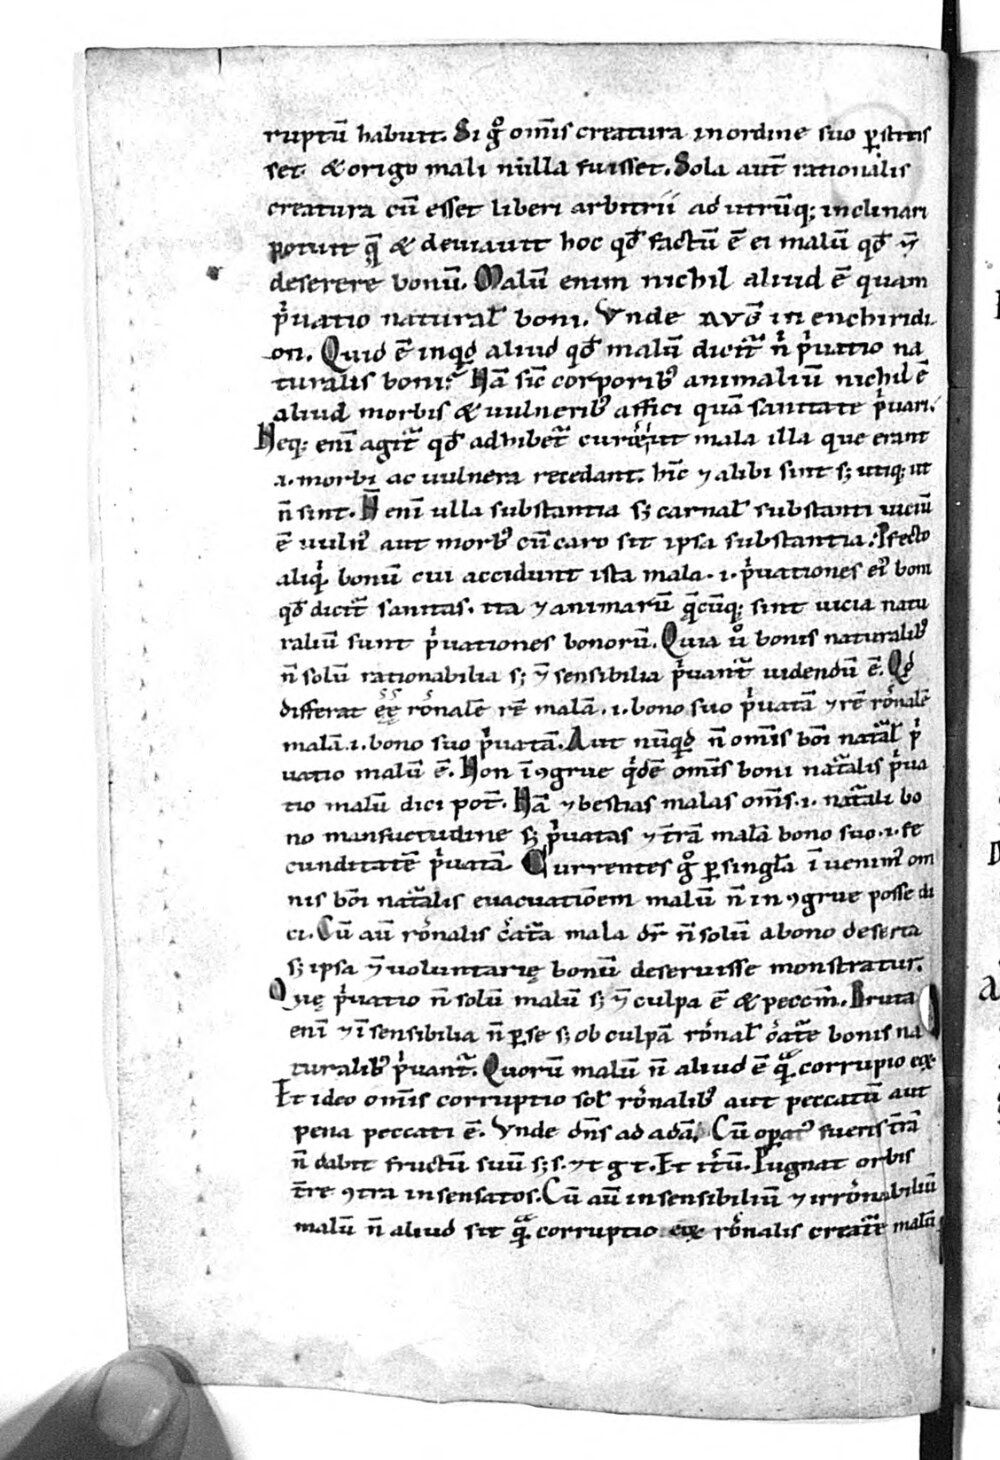 ruptū habuit. Si gͦ om̄is creatura in ordine suo ꝑstitis
set. & origo mali nulla fuisset. Sola aut̄ rationalis
creatura cū esset liberi arbitrii ad utrūq; inclinari
potuit qᷓ & deuiauit hoc qđ factū ē ei malū qđ ⁊
deserere bonū. Malū enim nichil aliud ē quam
pͥuatio natural̄ boni. Vnde AVḠ in enchiridi
on. Quid ē inqͥd aliud qđ malū dicit᷑ n̄ pͥuatio na
turalis boni? Nā sic̄ corporibꝰ animaliū nichil ē
aliud morbis & uulneribꝰ affici quā sanitate pͥuari.
Neq; eni̅ agit᷑ qđ adhibet᷑ mala illa que erant
.i. morbi ac uulnera recedant. hīc ⁊ alibi sint s; utiq; ut
n̄ sint. N̄ eni̅ ulla substantia s; carnal̄ substanti uiciū
ē uulnꝰ aut morbꝰ cū caro sit ipsa substantia. ꝓfecto
aliqͥ bonū cui accidunt ista mala .i. pͥuationes eiꝰ boni
qđ dicit᷑ sanitas. ita ⁊ animarū qᷓcūq; sint uicia natu
raliū sunt pͥuationes bonorū. Quia uͦ bonis naturalibꝰ
n̄ solū rationabilia s; ⁊ sensibilia pͥuant᷑ uidendū ē. Qđ
differat ēē rōnalē rē malā .i. bono suo pͥuatā ⁊ rē rōnalē
malā .i. bono suo pͥuatā. Aut nūqͥd n̄ om̄is bo̅i nat᷑al̄ pͥ
uatio malū ē. Non ī ꝯgrue qͥdē om̄is boni nat᷑alis pͥua
tio malū dici pot̄. Nā ⁊ bestias malas om̄s .i. nat᷑ali bo
no mansuetudine s; pͥuatas ⁊ t̄rā malā bono suo .i. fe
cunditatē pͥuatā. Currentes gͦ ꝑ singl̄a īuenimꝰ om
nis bo̅i nat᷑alis euacuatiōem malū n̄ in ꝯgrue posse di
ci. Cū aū rōnalis c̄at᷑a mala dr̄ n̄ solū a bono deserta
s; ipsa ⁊ uoluntarię bonū deseruisse monstratur.
Quę pͥuatio n̄ solū malū s; ⁊ culpa ē & pecc̄m. Bruta
eni̅ ⁊ īsensibilia n̄ ꝑ se s; ob culpā rōnal̄ c̄at᷑e bonis na
turalibꝰ pͥuant᷑. Quorū malū n̄ aliud ē qᷓ corrupio eoꝝ.
Et ideo om̄is corruptio sol̄ rōnalibꝰ aut peccatū aut
pena peccati ē. Vnde dn̄s ad adā. Cū opatꝰ fueris t̄rā
n̄ dabit fructū suū s; s. ⁊ t g t. Et it̄ū. Pugnat orbis
t̄re ꝯtra insensatos. Cū aū insensibiliū ⁊ irrōnabiliū
malū n̄ aliud sit qᷓ corruptio eoꝝ rōnalis creat᷑e malū